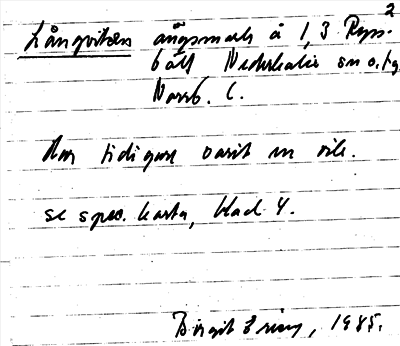 2
Långviken ängsmark å 1,3 Ryss-
bält Nederkalix sn o. tg
Norrb. l.
Har tidigare varit en vik.
se spec. karta, blad 4.
Birgit Ering, 1985.